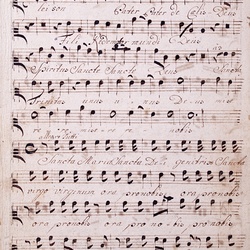 lei son Pater Pater de Celis Deus
Fili Redemptor mundi Deus
Spiritus Sancte Sancte Deus Sancta
Trinitas unus unus Deus mi se
re re mise re re nobis
Sancta Maria Sancta Dei genitrix Sancta
virgo virginum ora pro nobis ora pro nobis
ora pro nobis ora pro no bis ora pro nobis